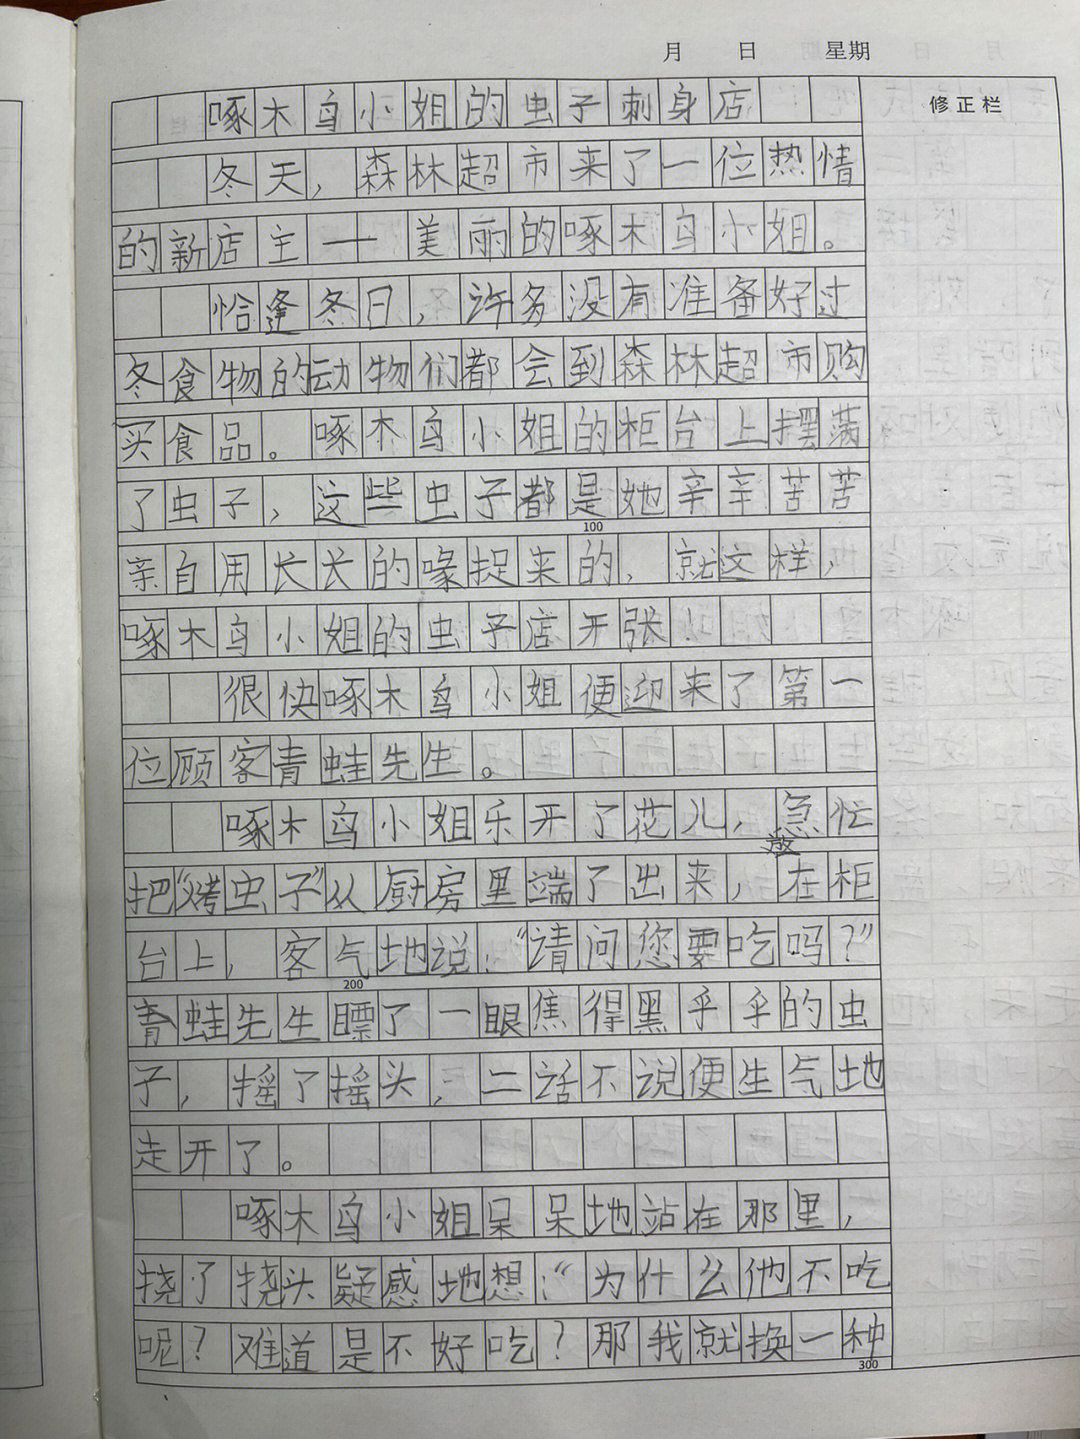 月 日 星期
修正栏
啄木鸟小姐的虫子刺身店
冬天，森林超市来了一位热情
的新店主——美丽的啄木鸟小姐。
恰逢冬日，许多没有准备好过
冬食物的动物们都会到森林超市购
买食品。啄木鸟小姐的柜台上摆满
了虫子，这些虫子都是她辛辛苦苦
100
亲自用长长的喙捉来的，就这样，
啄木鸟小姐的虫子店开张！
很快啄木鸟小姐便迎来了第一
位顾客青蛙先生。
啄木鸟小姐乐开了花儿，急忙
把“烤虫子”从厨房里端了出来，放在柜
台上，客气地说：“请问您要吃吗？”
200
青蛙先生瞟了一眼焦得黑乎乎的虫
子，摇了摇头，二话不说便生气地
走开了。
啄木鸟小姐呆呆地站在那里，
挠了挠头疑惑地想：“为什么他不吃
呢？难道是不好吃？那我就换一种
300